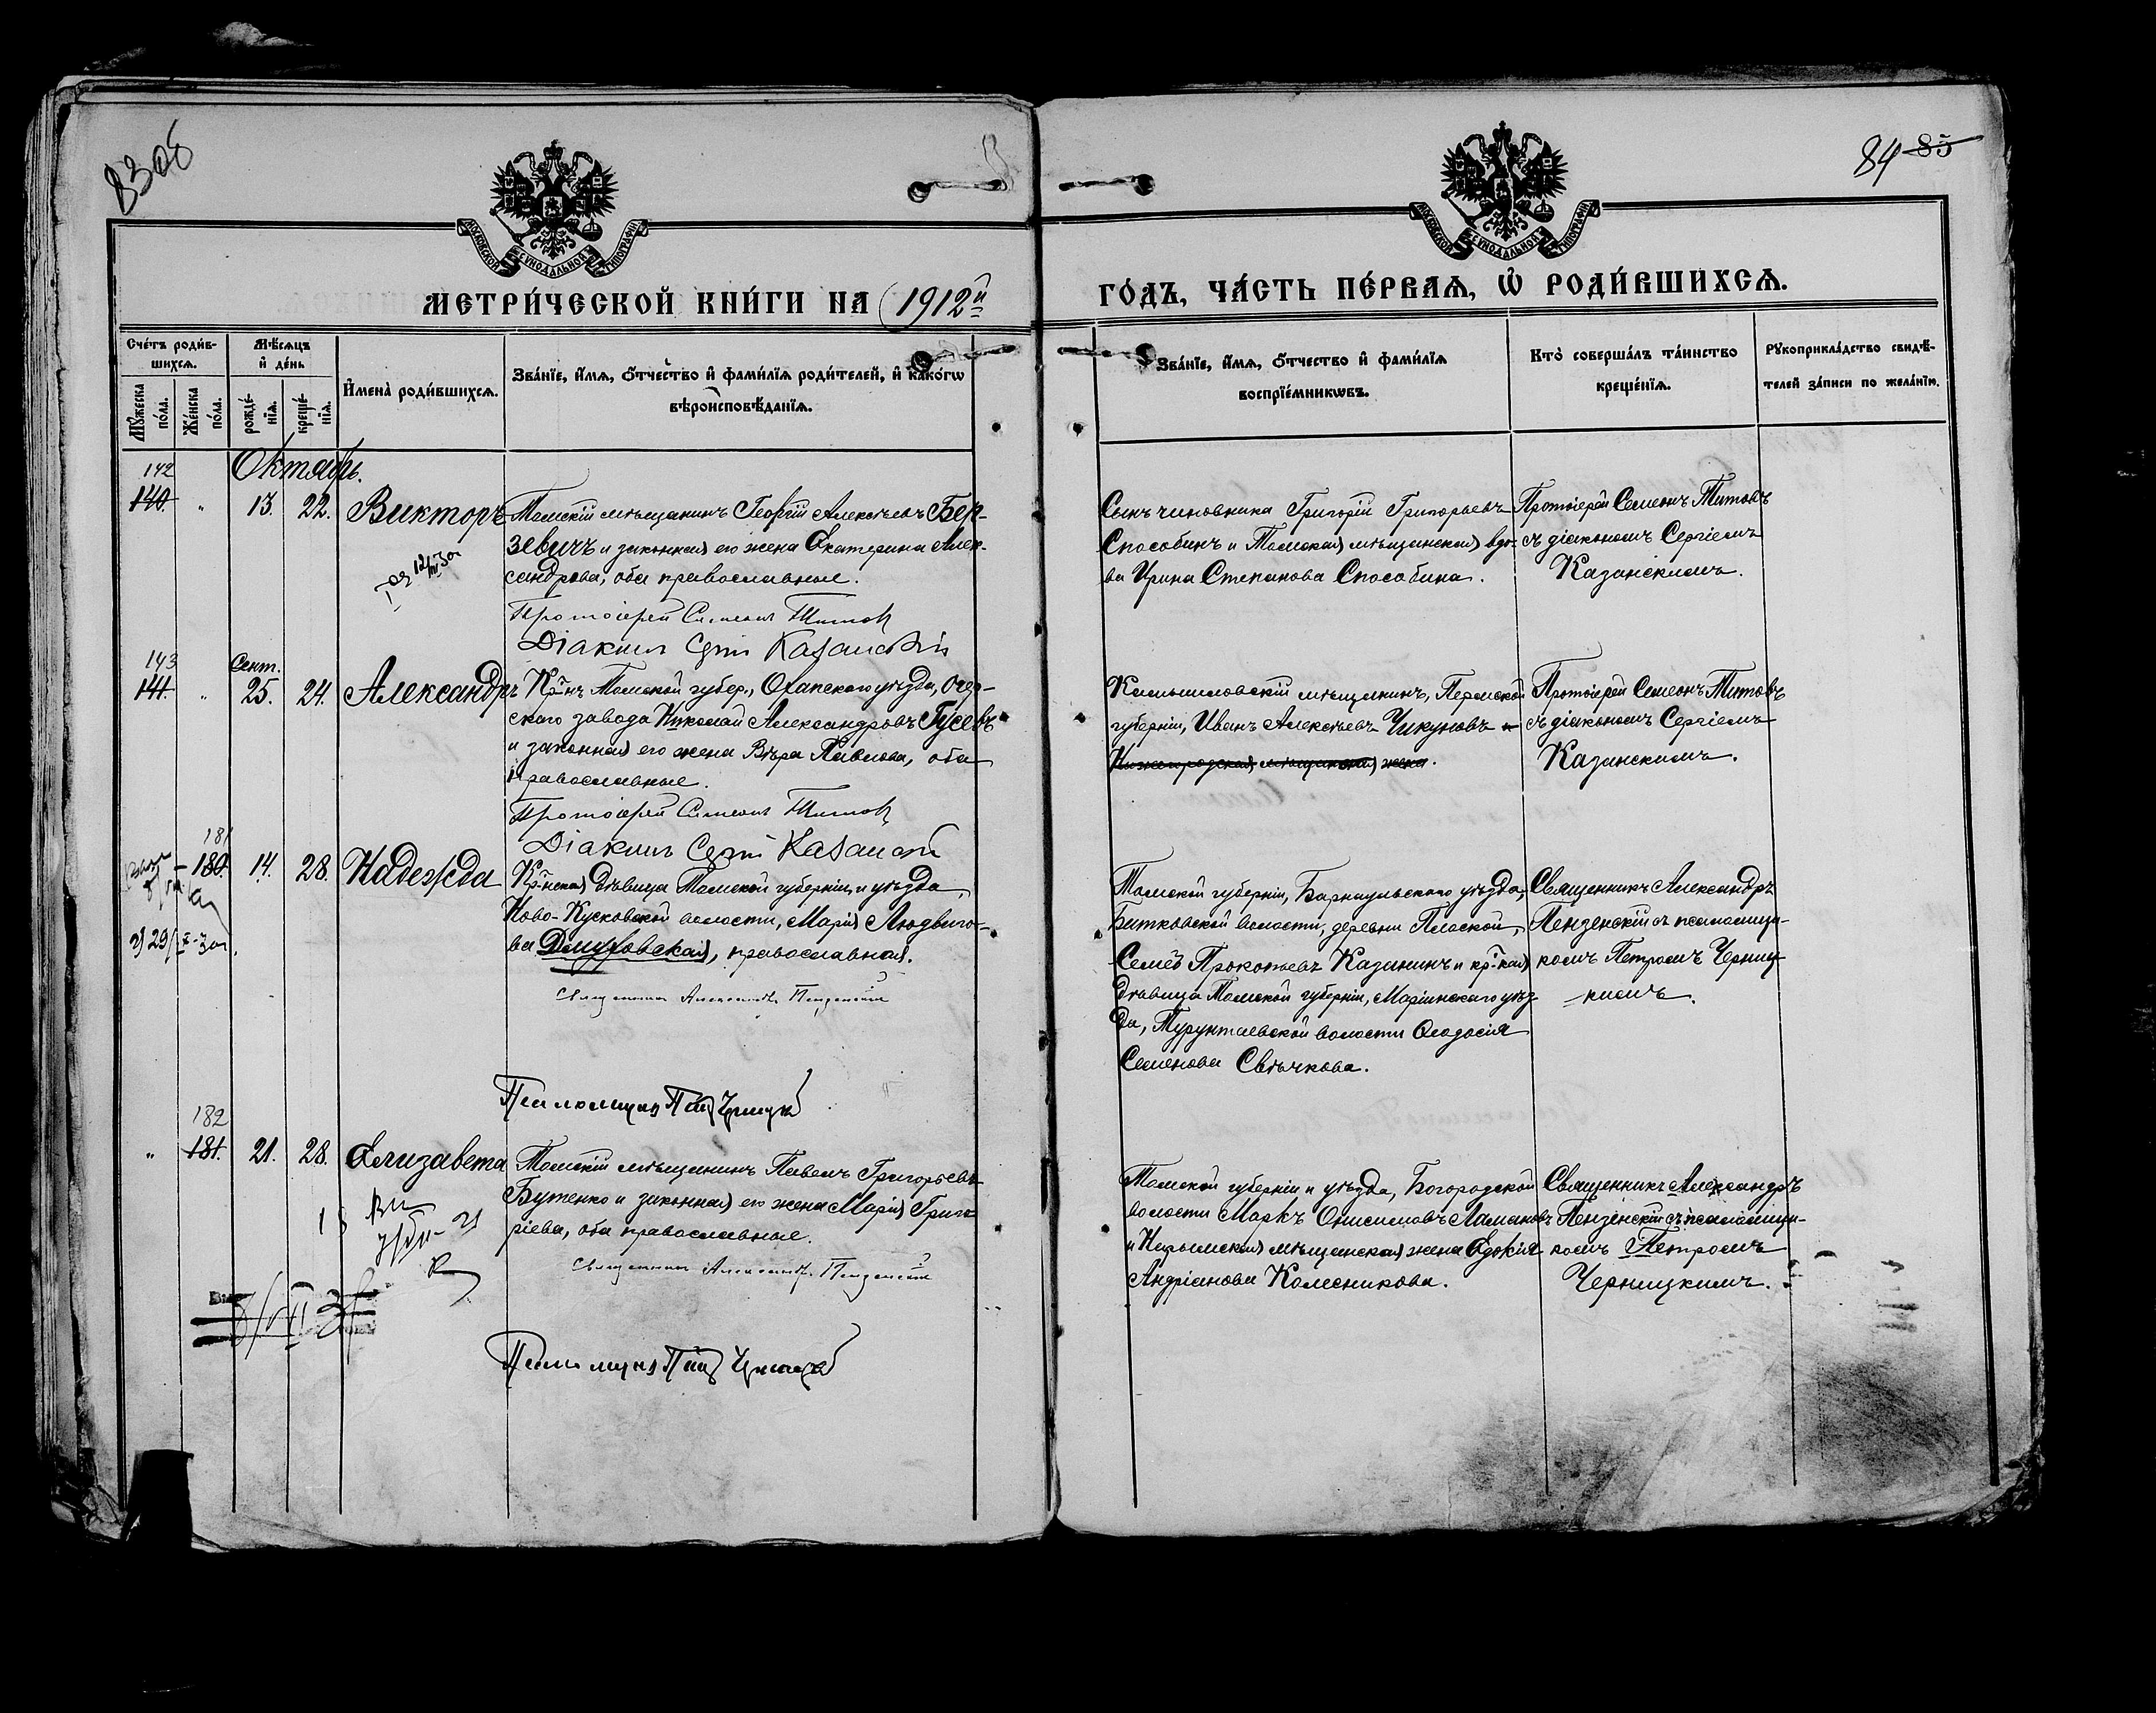 83об
84 85
МОСКОВСКОЙ СѴНОДАЛЬНОЙ ТИПОГРАФІИ
МОСКОВСКОЙ СѴНОДАЛЬНОЙ ТИПОГРАФІИ
МЕТРИ́ЧЕСКОЙ КНИ́ГИ НА 1912й
ГО́ДЪ, ЧА́СТЬ ПЕ́РВАѦ, Ѡ҆ РОДИ́ВШИХСѦ.
Сче́тъ роди́в-
шихсѧ.
Мѣ́сѧцъ
и҆ де́нь
Мꙋ́жеска по́ла.
Же́нска по́ла.
рожде́-
нїѧ.
креще́-
нїѧ.
И҆мена̀ роди́вшихсѧ.
Зва́нїе, и҆́мѧ, ѻ҆́тчество и҆ фами́лїѧ роди́телей, и҆ како́гѡ
вѣроисповѣ́данїѧ.
Зва́нїе, и҆́мѧ, ѻ҆́тчество и҆ фами́лїѧ
воспрїе́мникѡвъ.
Кто̀ соверша́лъ та́инство
креще́нїѧ.
Рꙋкоприкла́дство свидѣ́-
телей за́писи по жела́нїю.
Октябрь.
142
140. " 13. 22. Викторъ
Томскій мѣщанинъ Георгій Алексѣевъ Бер-
зевичъ и законная его жена Екатерина Алек-
сандрова, оба православные.
Протоіерей Симеонъ Титовъ
Діаконъ Сергій Казанскій
Сынъ чиновника Григорій Григорьевъ
Способинъ и Томская мѣщанская вдо-
ва Ирина Степанова Способина.
Протоіерей Симеонъ Титовъ
съ діакономъ Сергіемъ
Казанскимъ.
143 Сент.
141. " 25. 24. Александръ
Кр-нъ Томской губер., Оханскаго уѣзда, Очер-
скаго завода Николай Александровъ Гусевъ
и законная его жена Вѣра Павлова, оба
православные.
Протоіерей Симеонъ Титовъ
Діаконъ Сергій Казанскій
Камышловскій мѣщанинъ, Пермской
губерніи, Иванъ Алексѣевъ Чикуновъ и
Нижегородская мѣщанская жена.
Протоіерей Симеонъ Титовъ
съ діакономъ Сергіемъ
Казанскимъ.
181
180. 14. 28. Надежда
Кр-нская дѣвица Томской губерніи и уѣзда,
Ново-Кусковской волости, Марія Людвиго-
ва Домуховская, православная.
Священникъ Александръ Пензенскій
Псаломщикъ Петръ Черницкій
Томской губерніи, Барнаульскаго уѣзда,
Битковской волости, деревни Плоской,
Семёнъ Прокопьевъ Казанинъ и кр-кая
дѣвица Томской губерніи, Маріинскаго уѣз-
да, Турунтаевской волости Ѳеодосія
Семенова Свѣчкова.
Священникъ Александръ
Пензенскій съ псаломщи-
комъ Петромъ Черниц-
кимъ.
182
" 181. 21. 28. Елизавета
Томскій мѣщанинъ Павелъ Григорьевъ
Бутенко и законная его жена Марія Григо-
ріева, оба православные.
Священникъ Александръ Пензенскій
Псаломщикъ Петръ Черницкій
Томской губерніи и уѣзда, Богородской
волости Маркъ Онисимовъ Ламановъ
и Нарымская мѣщанская жена Евдокія
Андріанова Колесникова.
Священникъ Александръ
Пензенскій съ псаломщи-
комъ Петромъ
Черницкимъ.